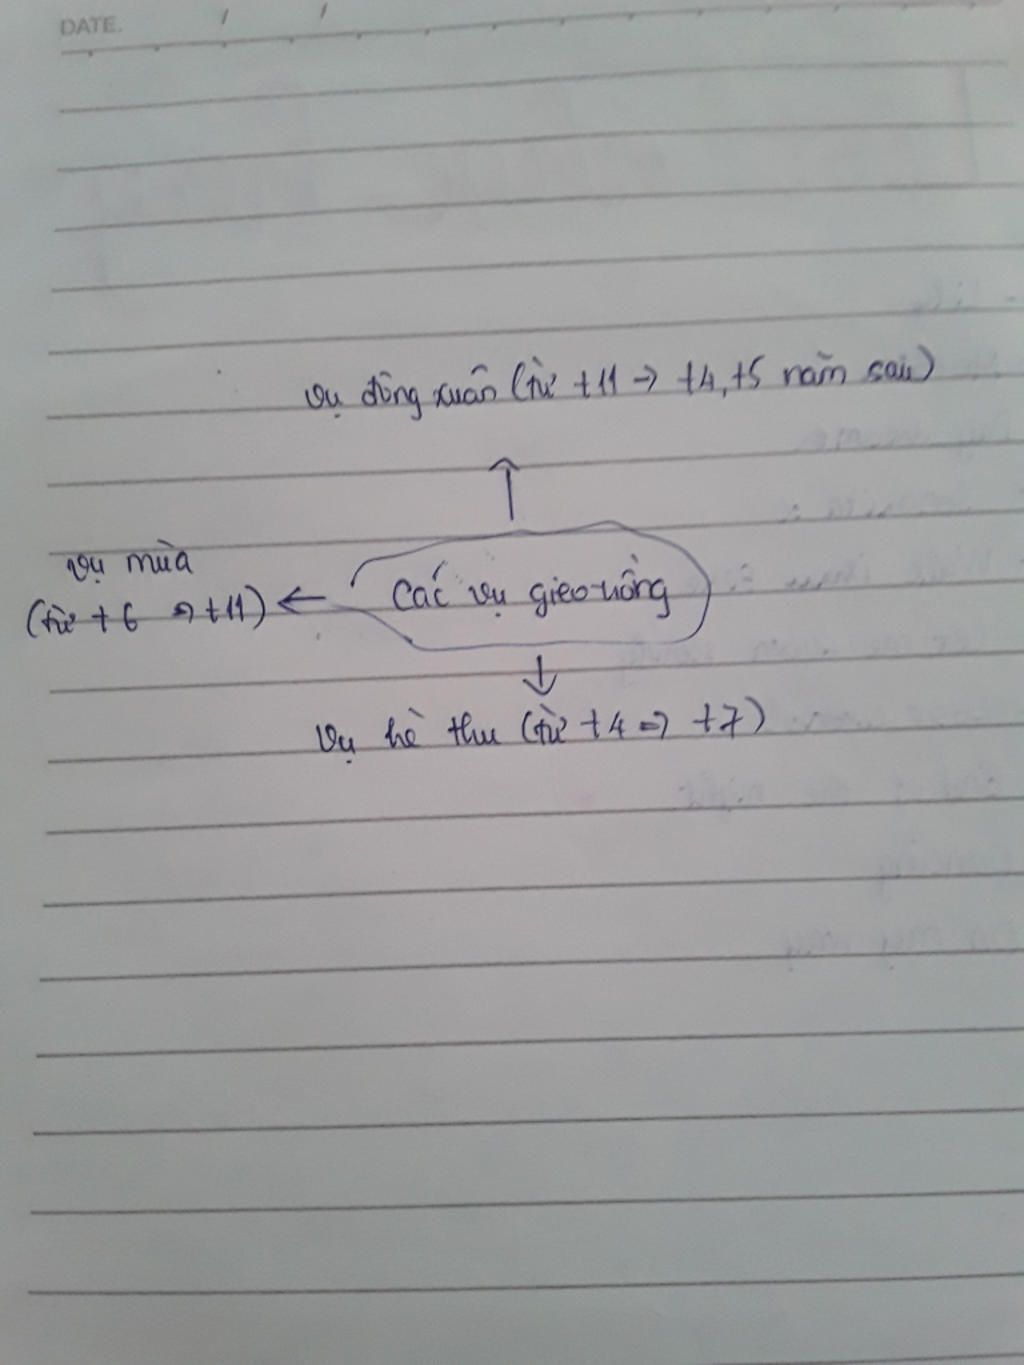 DATE. / /
vụ đông xuân (từ t11 → t4, t5 năm sau)
vụ mùa
(từ t6 → t11) ←
Các vụ gieo trồng
vụ hè thu (từ t4 → t7)